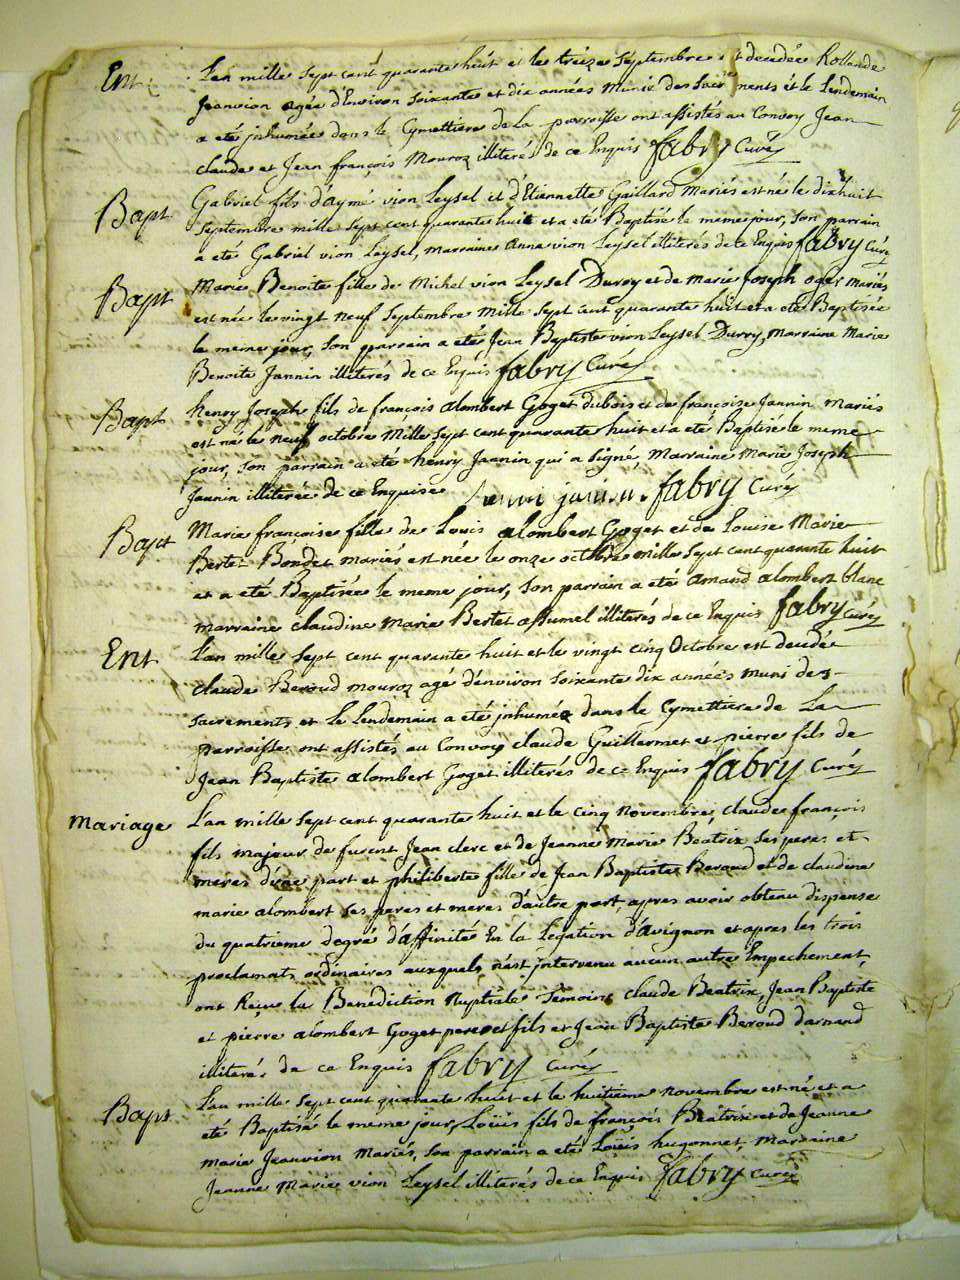 Ent L'an mille sept cent quarante huit et le treize Septembre est decedée Rollande
Jeanvion agée d'Environ soixante et dix années Munie des Sacrements et le Lendemain
a eté jnhumée dans le Cymettiere de la parroisse ont assistés au Convoy Jean
claude et Jean françois Mouroz illiterés de ce Enquis fabry Curé
Bapt Gabriel fils d'aymé vion Leysel et d'Etiennette Gaillard Mariés est né le dixhuit
Septembre mille Sept cent quarante huit et a eté Baptisé le meme jour, son parrain
a eté Gabriel vion Leysel, marraine Anne vion Leysel illiterés de ce Enquis fabry Curé
Bapt Marie Benoite fille de Michel vion Leysel Durry et de Marie Joseph oger Mariés
est née le vingt neuf Septembre Mille Sept Cent quarante huit et a eté Baptisée
le meme jour, Son parrain a eté Jean Baptiste vion Leysel Durry, Marraine Marie
Benoite Jannin illiterés de ce Enquis fabry Curé
Bapt henry Joseph fils de françois alombert Goget dubois et de françoise Jannin Mariés
est né le neuf octobre Mille Sept cent quarante huit et a eté Baptisé le meme
jour, son parrain a eté henry Jannin qui a signé, Marraine Marie Joseph
Jannin illiterée de ce Enquise janin fabry Curé
Bapt Marie françoise fille de Louis alombert Goget et de Louise Marie
Bertet Bondet mariés est née le onze octobre mille Sept cent quarante huit
et a eté Baptisée le meme jour, Son parrain a eté amand alombert blanc
marraine claudine Marie Bertet assumel illiterés de ce Enquis fabry Curé
Ent L'an mille Sept cent quarante huit et le vingt cinq Octobre est decedé
Claude Beroud mouroz agé denviron Soixante dix années muni des
sacrements et le Lendemain a eté jnhumé dans le Cymettiere de La
parroisse ont assistés au Convoy claude Guillermet et pierre fils de
Jean Baptiste alombert Goget illiterés de ce Enquis fabry Curé
Mariage L'an mille Sept cent quarante huit et le cinq novembre, claude françois
fils majeur de furent Jean clerc et de Jeanne Marie Beatrix ses peres et
meres d'une part et philiberte fille de Jean Baptiste Beroud et de claudine
marie alombert ses peres et meres d'autre part, apres avoir obtenu dispense
du quatrieme degré d'affinité En la Legation d'avignon et apres les trois
proclamats ordinaires auxquels n'est jntervenu aucun autre Empechement,
ont Reçu la Benediction Nuptiale Temoins claude Beatrix, Jean Baptiste
et pierre alombert Goget pere et fils et Jean Baptiste Beroud darnand
illiterés de ce Enquis fabry Curé
Bapt L'an mille Sept cent quarante huit et le huitieme novembre est né et a
eté Baptisé le meme jour, Loüis fils de françois Beatrix et de Jeanne
marie Jeanvion Mariés, son parrain a eté Loüis hugonnet, Marraine
Jeanne Marie vion Leysel illiterés de ce Enquis fabry Curé